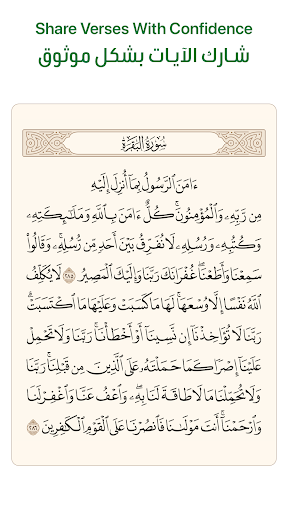 Share Verses With Confidence
شارك الآيات بشكل موثوق
سُورَةُ البَقَرَةِ
ءَامَنَ ٱلرَّسُولُ بِمَآ أُنزِلَ إِلَيْهِ
مِن رَّبِّهِۦ وَٱلْمُؤْمِنُونَۚ كُلٌّ ءَامَنَ بِٱللَّهِ وَمَلَٰٓئِكَتِهِۦ
وَكُتُبِهِۦ وَرُسُلِهِۦ لَا نُفَرِّقُ بَيْنَ أَحَدٍ مِّن رُّسُلِهِۦۚ وَقَالُوا۟
سَمِعْنَا وَأَطَعْنَاۖ غُفْرَانَكَ رَبَّنَا وَإِلَيْكَ ٱلْمَصِيرُ ٢٨٥ لَا يُكَلِّفُ
ٱللَّهُ نَفْسًا إِلَّا وُسْعَهَاۚ لَهَا مَا كَسَبَتْ وَعَلَيْهَا مَا ٱكْتَسَبَتْۗ
رَبَّنَا لَا تُؤَاخِذْنَآ إِن نَّسِينَآ أَوْ أَخْطَأْنَاۚ رَبَّنَا وَلَا تَحْمِلْ
عَلَيْنَآ إِصْرًا كَمَا حَمَلْتَهُۥ عَلَى ٱلَّذِينَ مِن قَبْلِنَاۚ رَبَّنَا
وَلَا تُحَمِّلْنَا مَا لَا طَاقَةَ لَنَا بِهِۦۖ وَٱعْفُ عَنَّا وَٱغْفِرْ لَنَا
وَٱرْحَمْنَآۚ أَنتَ مَوْلَىٰنَا فَٱنصُرْنَا عَلَى ٱلْقَوْمِ ٱلْكَٰفِرِينَ ٢٨٦